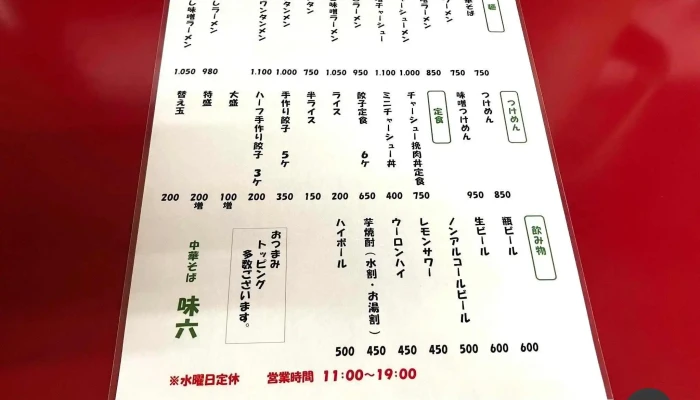 麺
華そば 750
ラーメン 750
ラーメン 850
チャーシューメン 1.000
チャーシューメン 1.100
ラーメン 950
味噌ラーメン 1.050
タン 750
ンタンメン 1.000
ワンタンメン 1.100
しラーメン 980
し味噌ラーメン 1.050
つけめん
つけめん 850
味噌つけめん 950
定食
チャーシュー挽肉丼定食 750
ミニチャーシュー丼 400
餃子定食 6ヶ 650
ライス 200
半ライス 150
手作り餃子 5ヶ 350
ハーフ手作り餃子 3ヶ 200
大盛 100増
特盛 200増
替え玉 200
飲み物
瓶ビール 600
生ビール 600
ノンアルコールビール 500
レモンサワー 450
ウーロンハイ 450
芋焼酎(水割・お湯割) 450
ハイボール 500
おつまみ
トッピング
多数ございます。
中華そば 味六
※水曜日定休 営業時間 11:00〜19:00